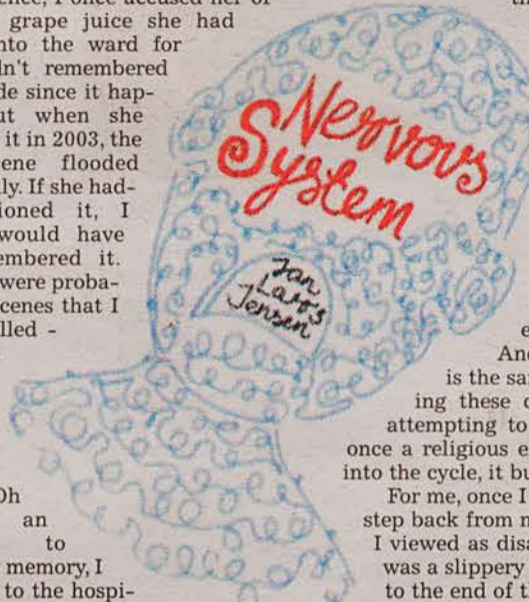 grape juice she had
into the ward for
dn't remembered
de since it hap-
ut when she
it in 2003, the
ene flooded
ly. If she had-
ioned it, I
would have
embered it.
were proba-
scenes that I
lled -
Nervous
System
Jan
Lars
Jensen
And
is the sa
ing these
attempting to
once a religious e
into the cycle, it bu
For me, once I
step back from
I viewed as disa
was a slippery
to the end of t
Oh
an
to
memory, I
to the hospi-